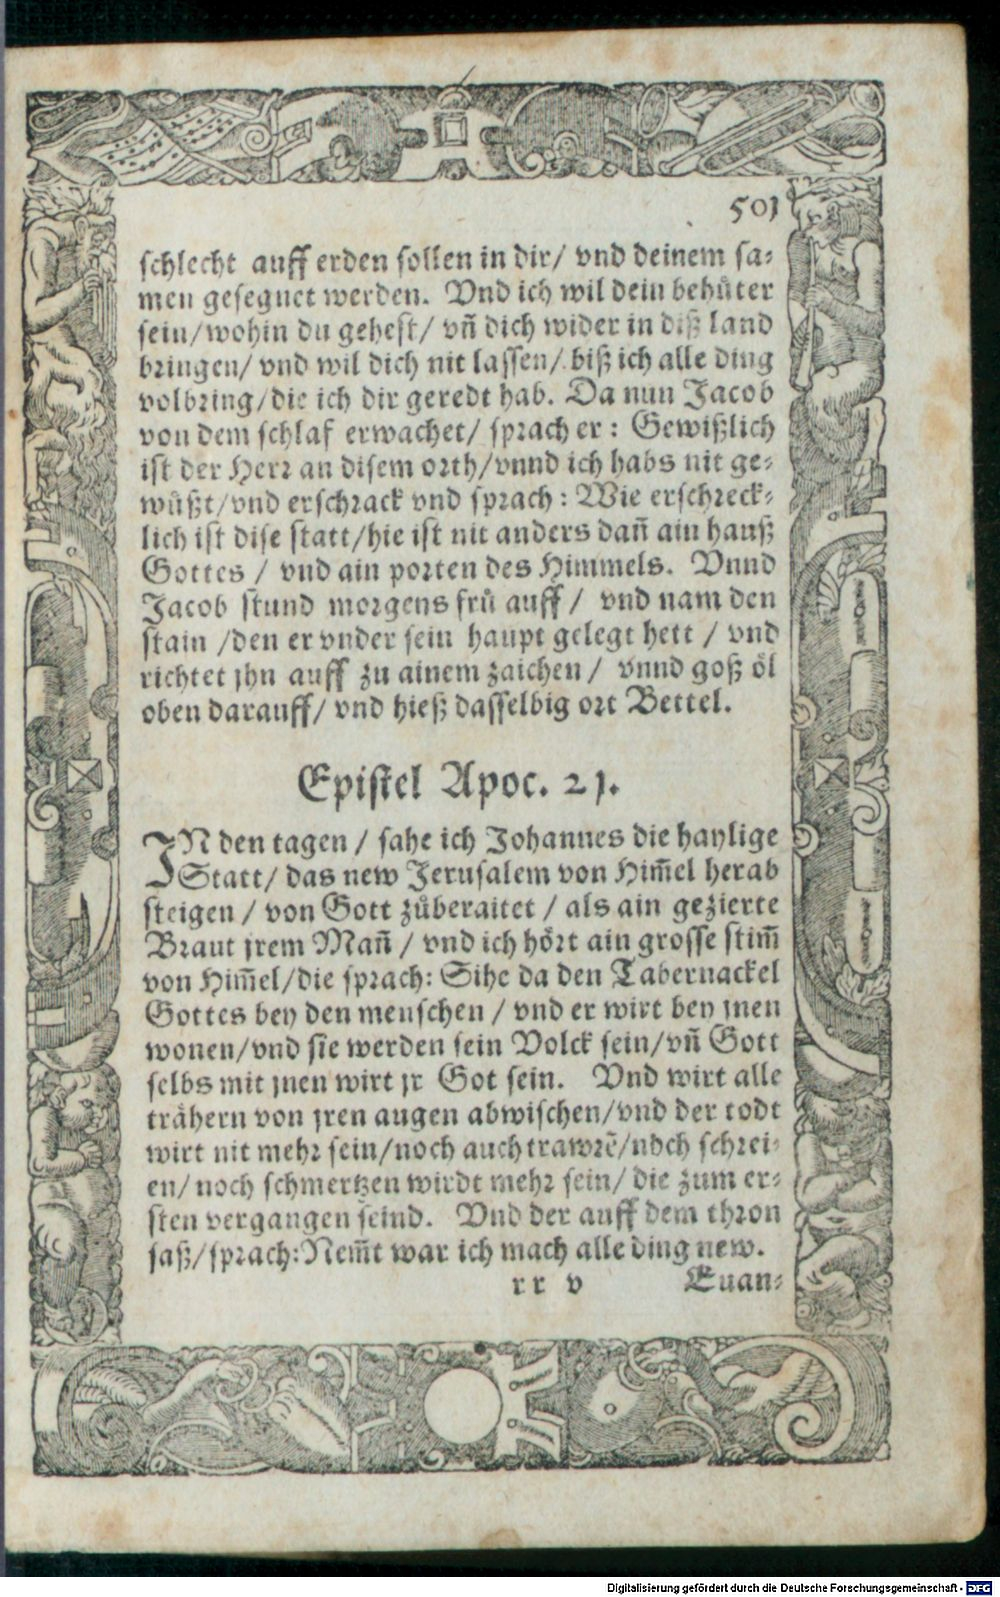 501
schlecht auff erden sollen in dir/ vnd deinem sa-
men gesegnet werden. Vnd ich wil dein behüter
sein/wohin du gehest/ vñ dich wider in diß land
bringen/ vnd wil dich nit lassen/ biß ich alle ding
volbring/die ich dir geredt hab. Da nun Jacob
von dem schlaf erwachet/ sprach er: Gewißlich
ist der Herr an disem orth/vnnd ich habs nit ge-
wüßt/vnd erschrack vnd sprach: Wie erschreck-
lich ist dise statt/hie ist nit anders dañ ain hauß
Gottes / vnd ain porten des Himmels. Vnnd
Jacob stund morgens frů auff / vnd nam den
stain /den er vnder sein haupt gelegt hett / vnd
richtet jhn auff zu ainem zaichen / vnnd goß öl
oben darauff/ vnd hieß dasselbig ort Bettel.
Epistel Apoc. 21.
IN den tagen / sahe ich Johannes die haylige
Statt/ das new Jerusalem von Him̃el herab
steigen / von Gott zůberaitet / als ain gezierte
Braut jrem Mañ / vnd ich hört ain grosse stim̃
von Him̃el/die sprach: Sihe da den Tabernackel
Gottes bey den menschen / vnd er wirt bey jnen
wonen/vnd sie werden sein Volck sein/vñ Gott
selbs mit jnen wirt jr Got sein. Vnd wirt alle
trähern von jren augen abwischen/vnd der todt
wirt nit mehr sein/noch auch trawrẽ/noch schrei-
en/ noch schmertzen wirdt mehr sein/ die zum er-
sten vergangen seind. Vnd der auff dem thron
saß/sprach:Nem̃t war ich mach alle ding new.
rr v Euan-
Digitalisierung gefördert durch die Deutsche Forschungsgemeinschaft - DFG